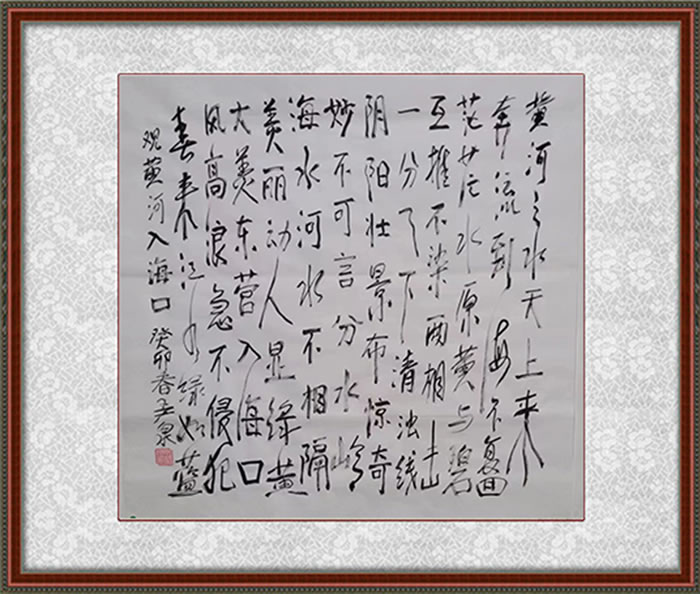 黄河之水天上来
奔流到海不复回
茫茫水原黄与碧
互推不染两相
一分了下清浊线
阴阳壮景布惊奇
妙不可言分水岭
海水河水不相隔
美丽动人显绿黄
大美东营入海口
风高浪急不侵犯
春来江水绿如蓝
观黄河入海口 癸卯春 泉